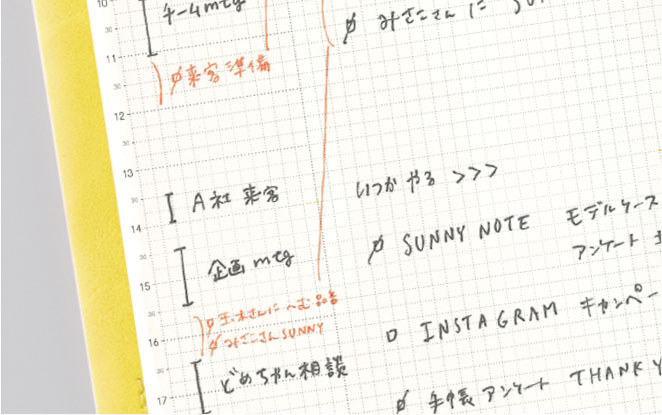 10
チームmtg
みさこさんに SUN
30
11
来客準備
30
12
30
13
いつかやる >>>
A社来客
30
14
SUNNY NOTE モデルケース
アンケート
企画mtg
30
15
みさこさんSUNNY
30
16
INSTAGRAM キャンペー
どめちゃん相談
30
17
手帳アンケート THANK Y